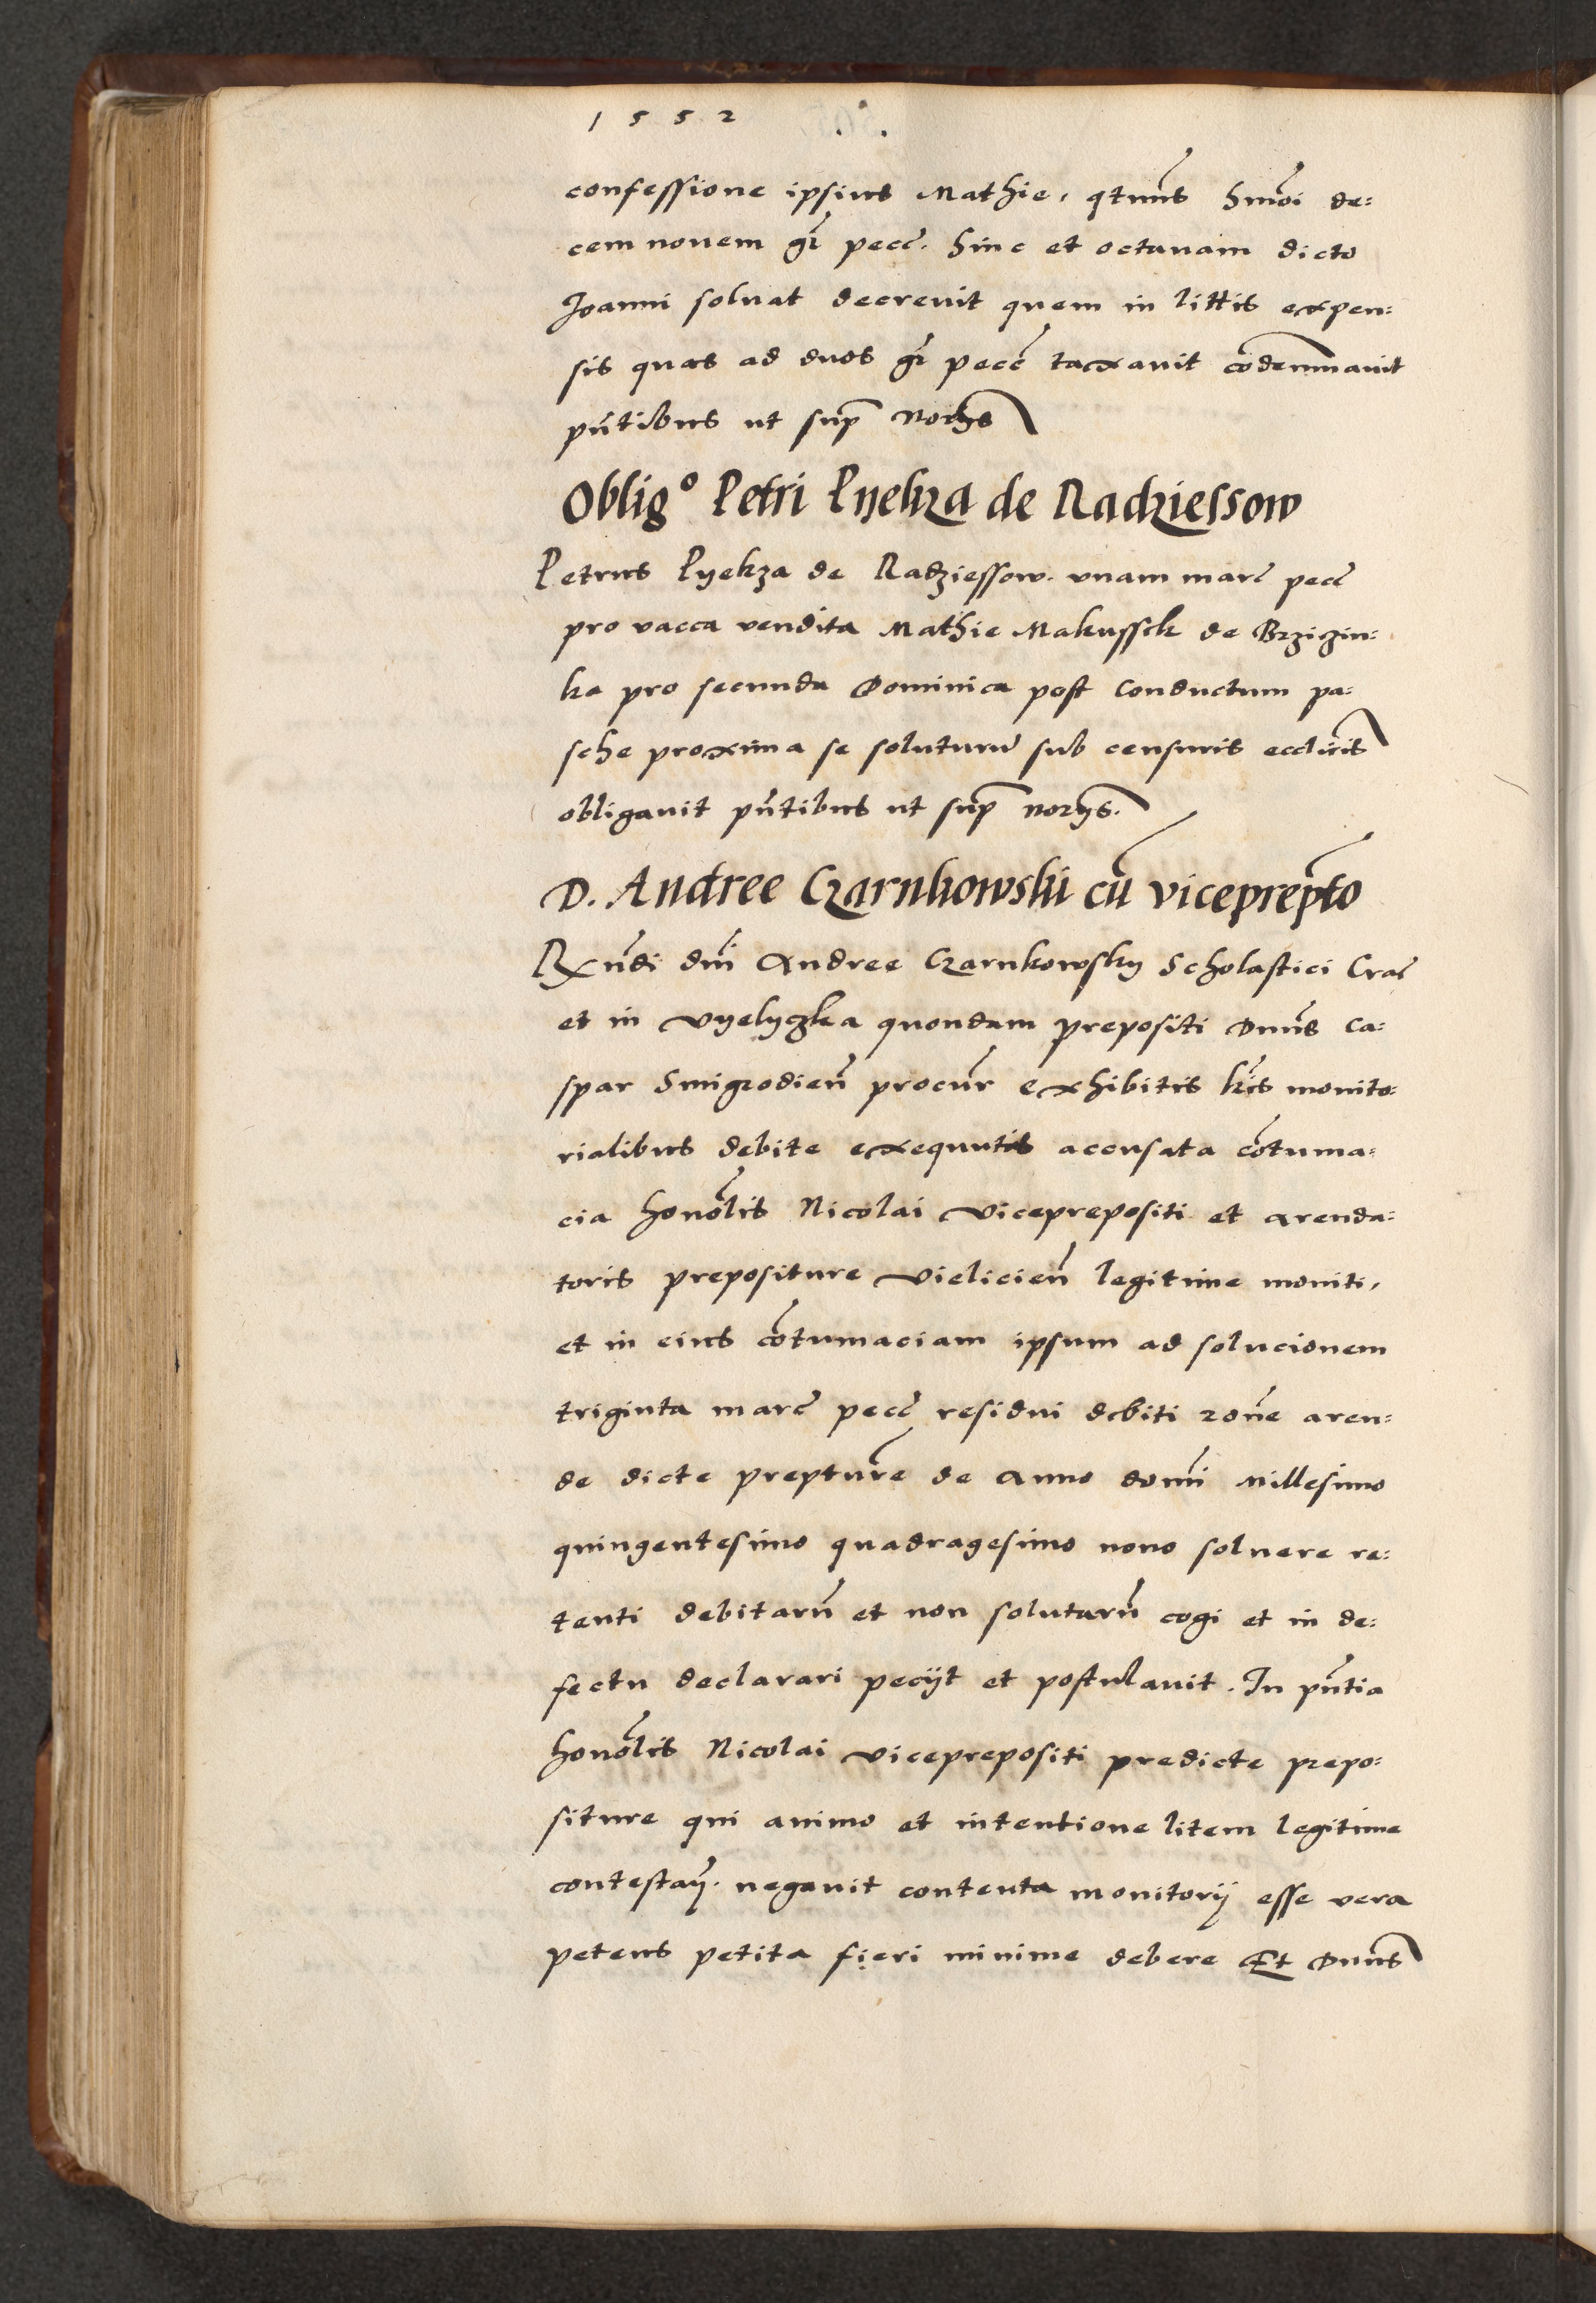 1552
confessione ipsius Mathie, qtnus hmoi de:
cem novem gr pecc. hinc et octavam dicto
Joanni solvat decrevit quem in littis expen:
sis quas ad duos gr pecc taxavit condemnavit
pntibus ut sup norijs
Oblig° Petri Pyekza de Radziessow
Petrus Pyekza de Radziessow. unam marc pecc
pro vacca vendita Mathie Makussek de Brziczin:
ka pro secunda Dominica post Conductum pa:
sche proxima se soluturu sub censuris ecclicis
obligavit pntibus ut sup norijs.
D. Andree Czarnkowski cu viceprepto
Rndi dni Andree Czarnkowsky Scholastici Crac
et in Vyelyczka quondam prepositi Dnus Ca:
spar Smigrodien procur exhibitis lris monito:
rialibus debite exequutis accusata cotuma:
cia honolis Nicolai Viceprepositi et arenda:
toris prepositure Vielicien legitime moniti,
et in eius cotumaciam ipsum ad solucionem
triginta marc pecc residui debiti rone aren:
de dicte prepture de Anno domi Millesimo
quingentesimo quadragesimo nono solvere re:
tenti debitaru et non solutaru cogi et in de:
fectu declarari pecijt et postulavit. In pntia
honolis Nicolai Viceprepositi predicte prepo:
siture qui animo et intentione litem legitime
contestaij. negavit contenta monitorij esse vera
petens petita fieri minime debere Et Dnus